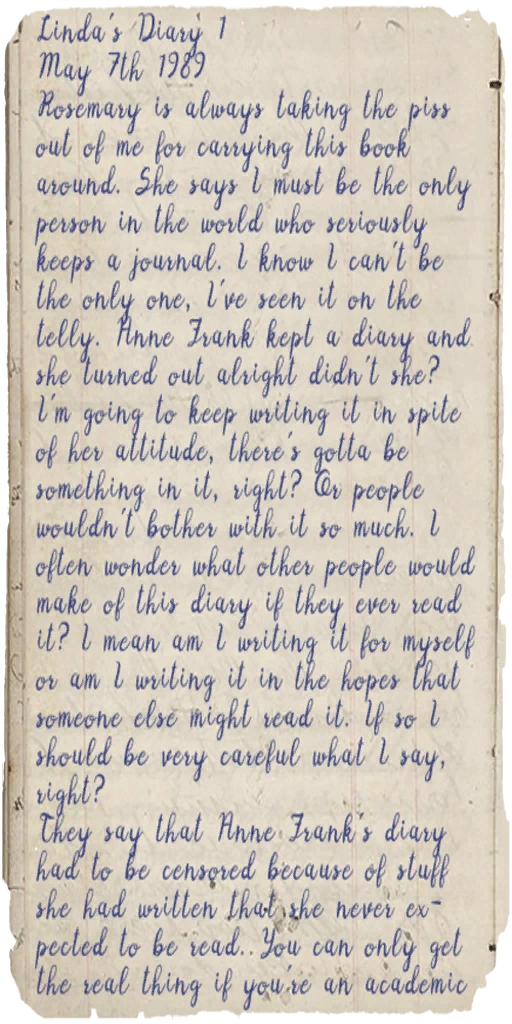 Linda's Diary 1
May 7th 1989
Rosemary is always taking the piss
out of me for carrying this book
around. She says I must be the only
person in the world who seriously
keeps a journal. I know I can't be
the only one, I've seen it on the
telly. Anne Frank kept a diary and
she turned out alright didn't she?
I'm going to keep writing it in spite
of her attitude, there's gotta be
something in it, right? Or people
wouldn't bother with it so much. I
often wonder what other people would
make of this diary if they ever read
it? I mean am I writing it for myself
or am I writing it in the hopes that
someone else might read it. If so I
should be very careful what I say,
right?
They say that Anne Frank's diary
had to be censored because of stuff
she had written that she never ex-
pected to be read.. You can only get
the real thing if you're an academic